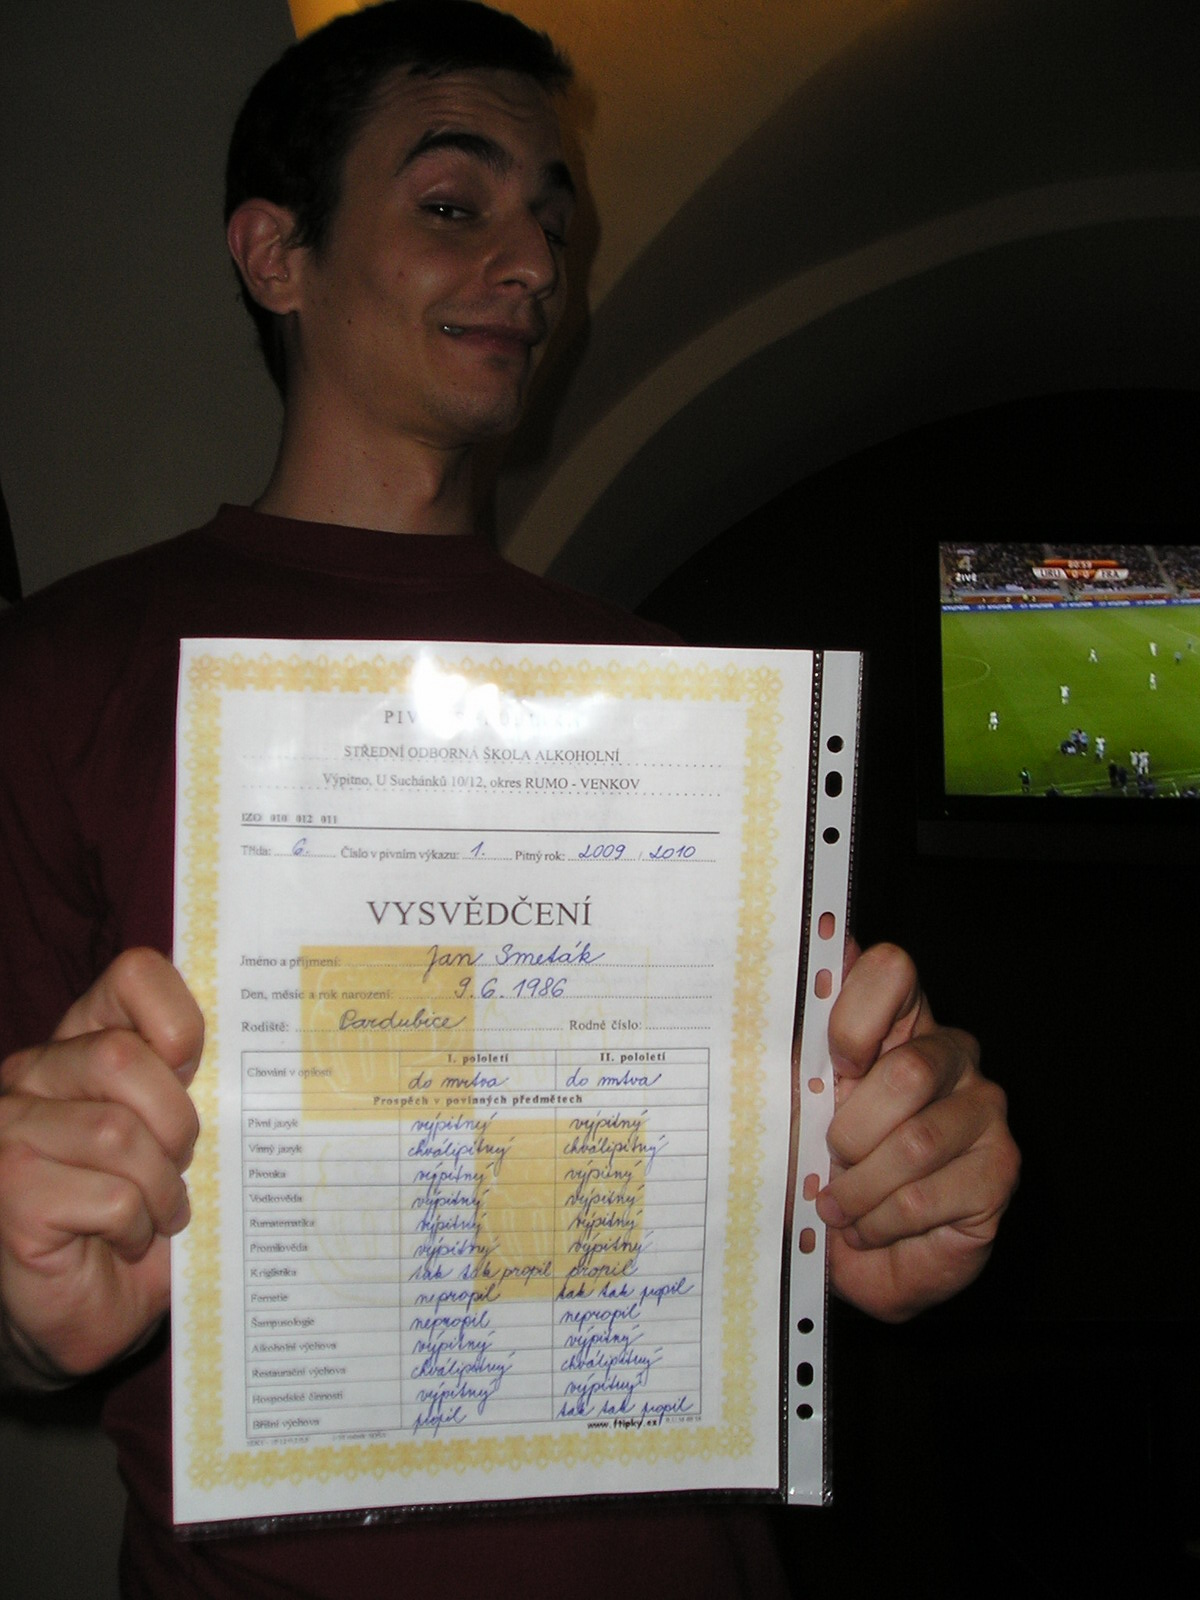 4
ŽIVĚ
URU 0 0 FRA
STŘEDNÍ ODBORNÁ ŠKOLA ALKOHOLNÍ
Výpitno, U Suchánků 10/12, okres RUMO - VENKOV
IZO 010 012 011
Třída: 6. Číslo v pivním výkazu: 1. Pitný rok: 2009 / 2010
VYSVĚDČENÍ
Jméno a příjmení: Jan Smeták
Den, měsíc a rok narození: 9.6.1986
Rodiště: Pardubice Rodné číslo:
I. pololetí II. pololetí
Chování v opilosti do mrtva do mrtva
Prospěch v povinných předmětech
Pivní jazyk výpitný výpitný
Vinný jazyk chválipitný chválipitný
Pivonka výpitný výpitný
Vodkověda výpitný výpitný
Rumatematika výpitný výpitný
Promilověda výpitný výpitný
Kriglistika tak tak propil propil
Fernetie nepropil tak tak propil
Šampusologie nepropil nepropil
Alkoholní výchova výpitný výpitný
Restaurační výchova chválipitný chválipitný
Hospodské činnosti výpitný výpitný
Břišní výchova propil tak tak propil
www.ftipky.cz